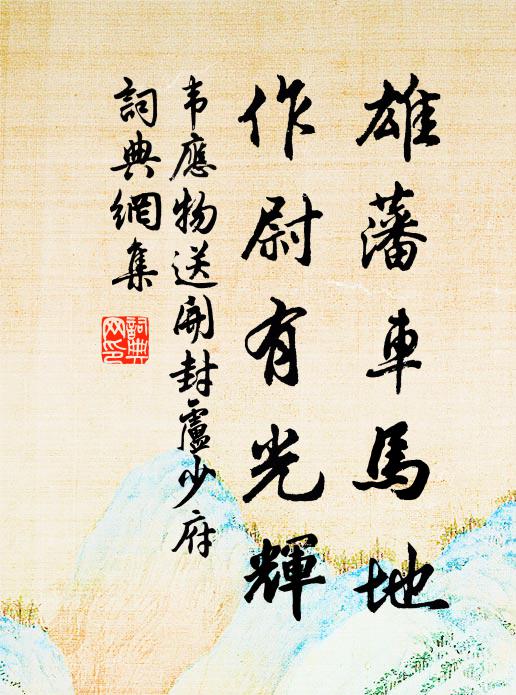 雄藩車馬地
作尉有光輝
韦應物送開封盧少府
詞典網集
詞典网印